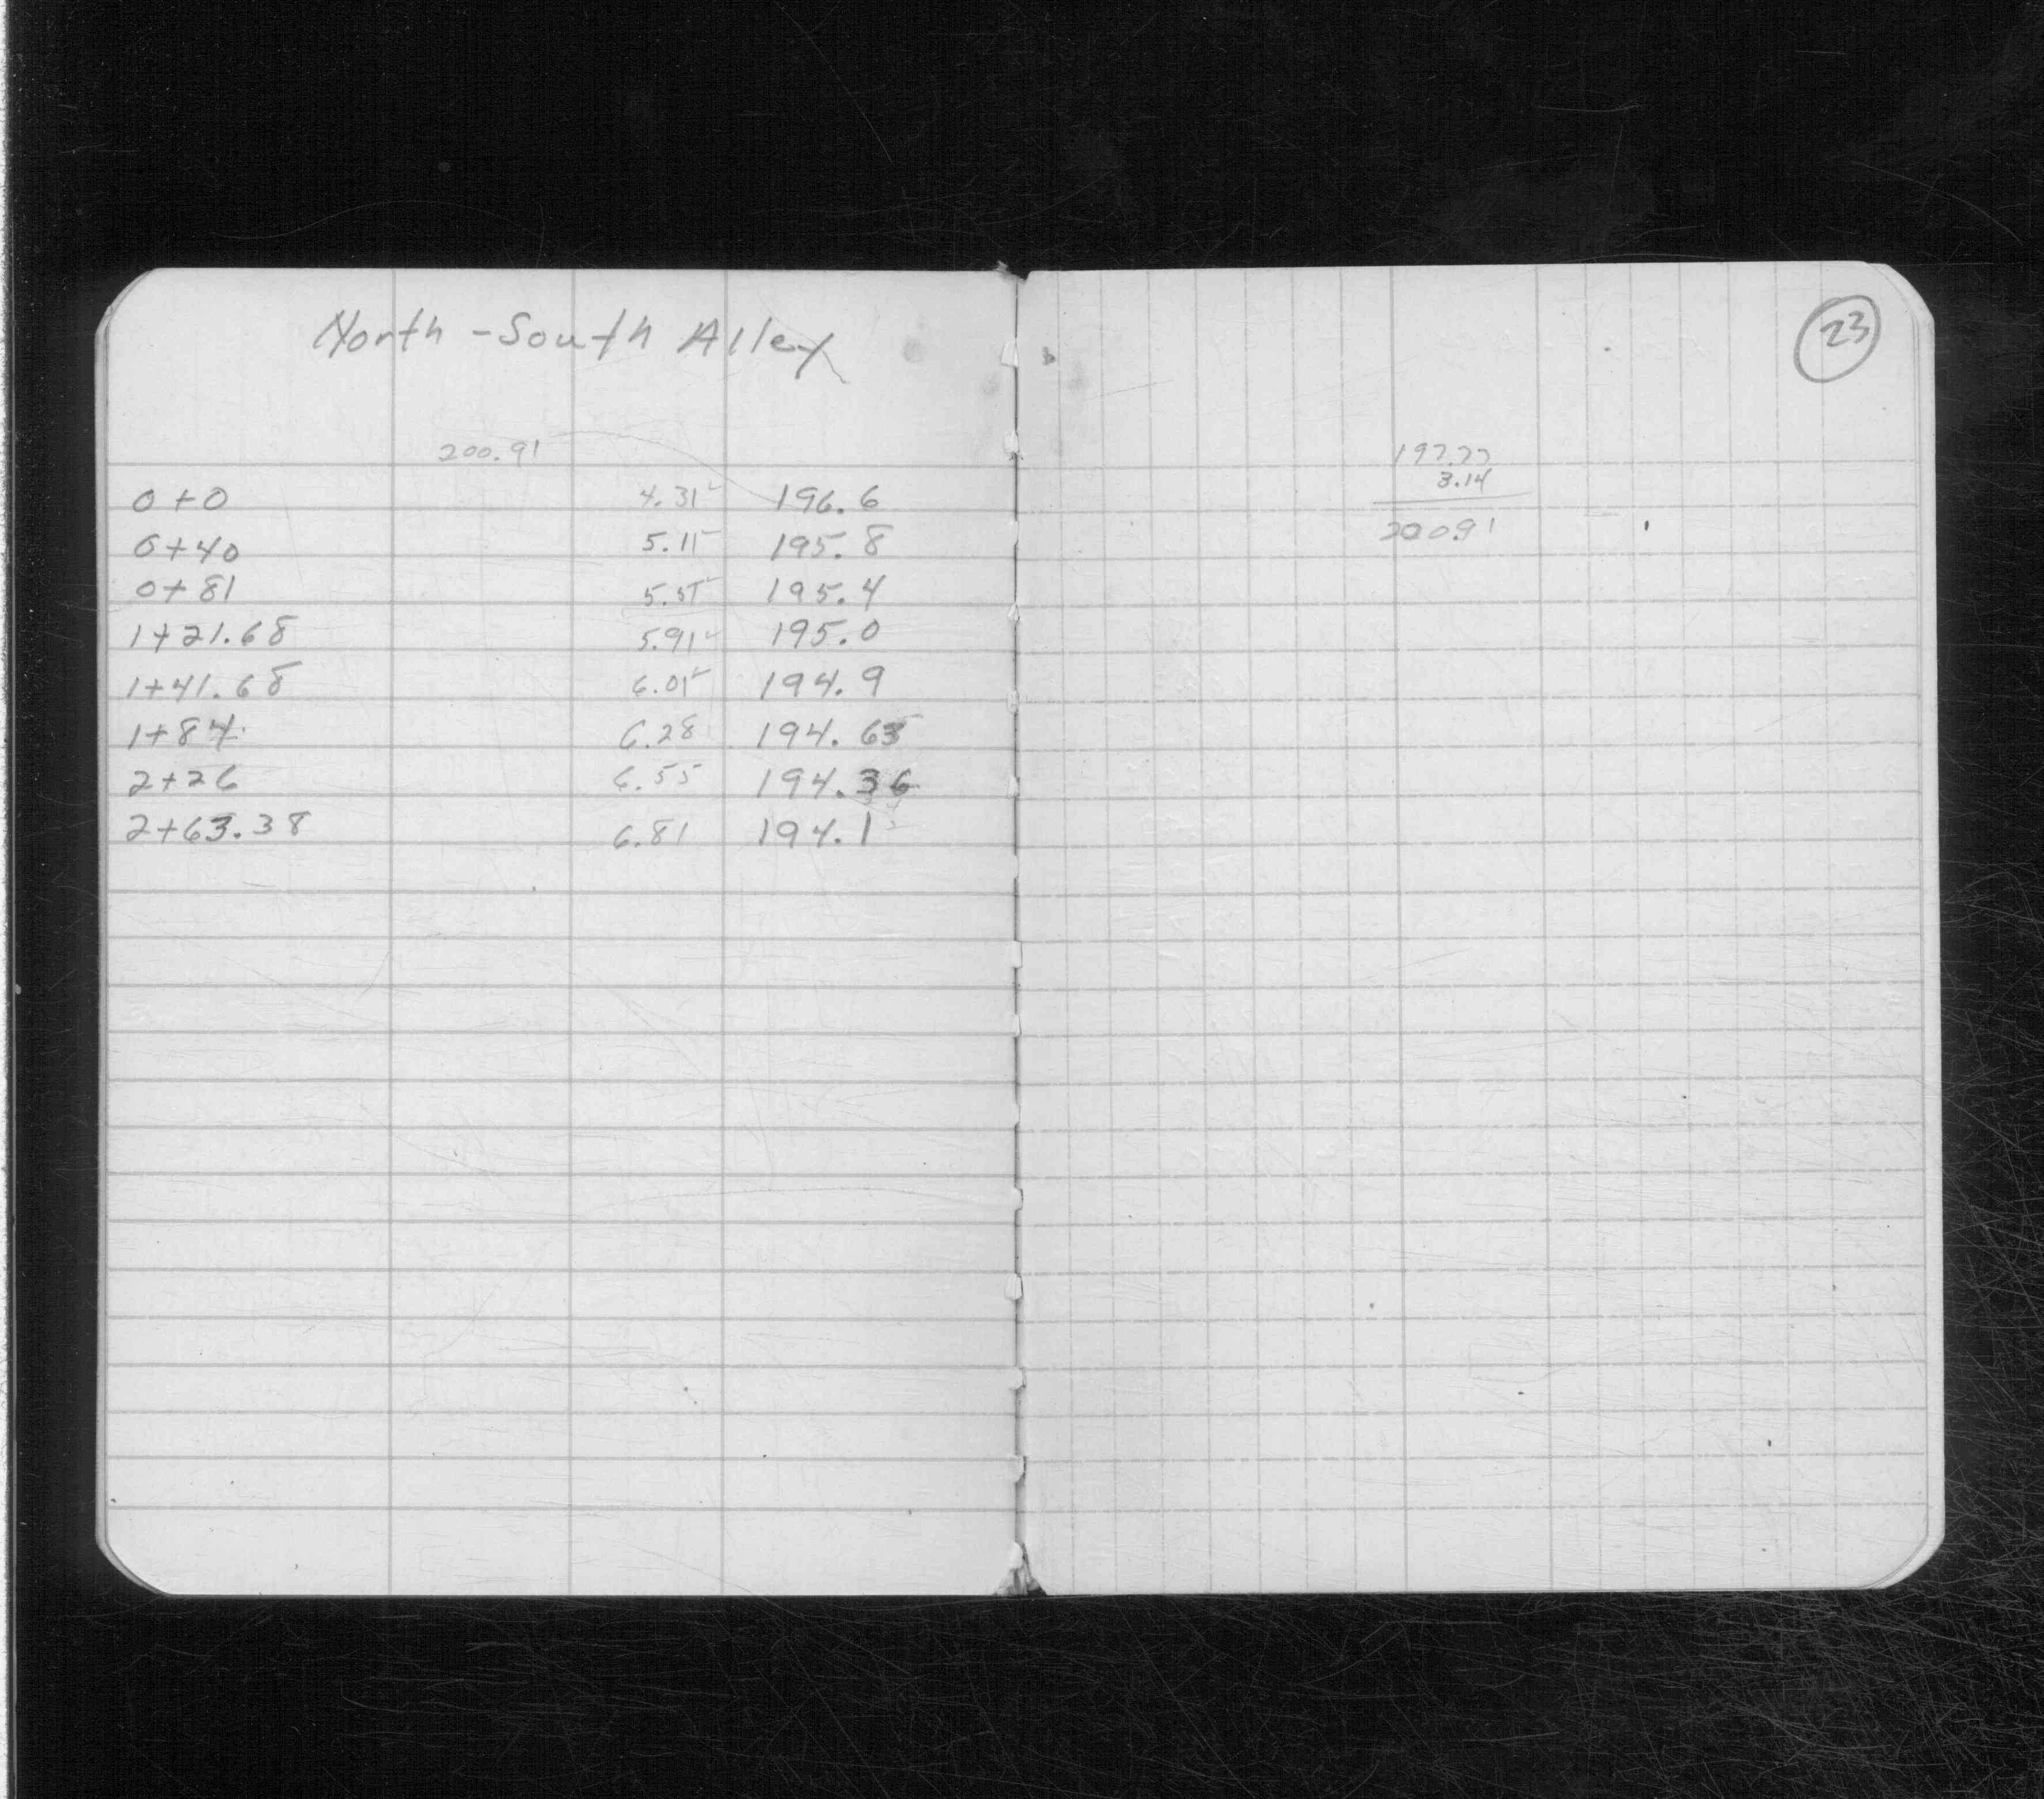 North - South Alley
200.91
0+0 4.31 196.6
0+40 5.11 195.8
0+81 5.51 195.4
1+21.68 5.91 195.0
1+41.68 6.01 194.9
1+84 6.28 194.63
2+26 6.55 194.36
2+63.38 6.81 194.1
23
197.77
3.14
200.91